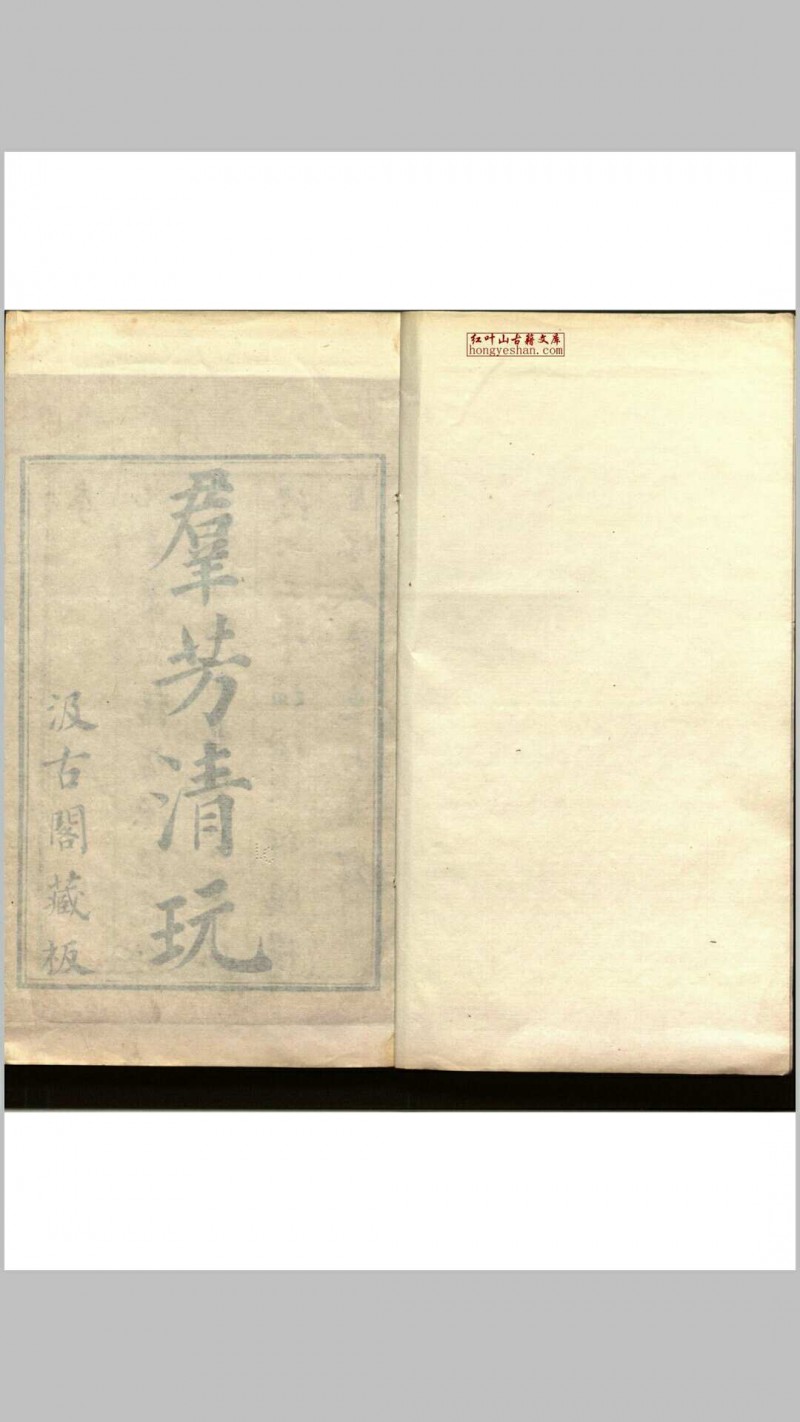 红叶山古籍文库
hongyeshan.com
羣芳清玩
汲古閣藏板